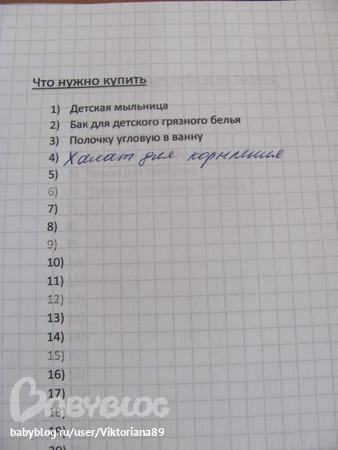 Что нужно купить
1) Детская мыльница
2) Бак для детского грязного белья
3) Полочку угловую в ванну
4) Халат для кормления
5)
6)
7)
8)
9)
10)
11)
12)
13)
14)
15)
16)
17)
18)
19)
20)
BABYBLOG
babyblog.ru/user/Viktoriana89